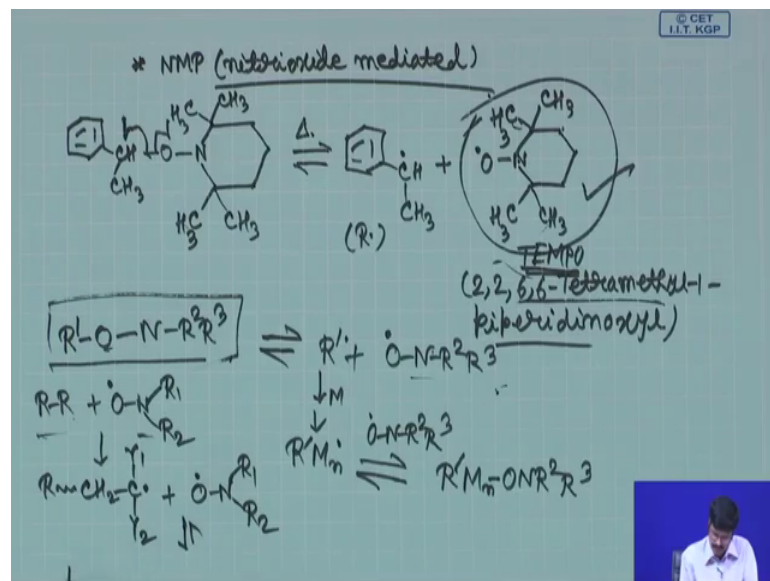 © CET
I.I.T. KGP
* NMP (nitrioxide mediated)
H₃C CH₃ H₃C CH₃
CH–O–N Δ. ⇌ ĊH + •O–N
CH₃ CH₃
H₃C CH₃ (R·) H₃C CH₃
TEMPO
(2,2,6,6-Tetramethyl-1-
piperidinoxyl)
R¹–O–N–R²R³ ⇌ R¹· + •O–N–R²R³
R–R + •O–N R₁ R₂ ↓M
↓ R'Mₙ• •O–N–R²R³ ⇌ R'Mₙ–ONR²R³
Y₁
R~CH₂–C• + •O–N R₁ R₂
Y₂ ⇌